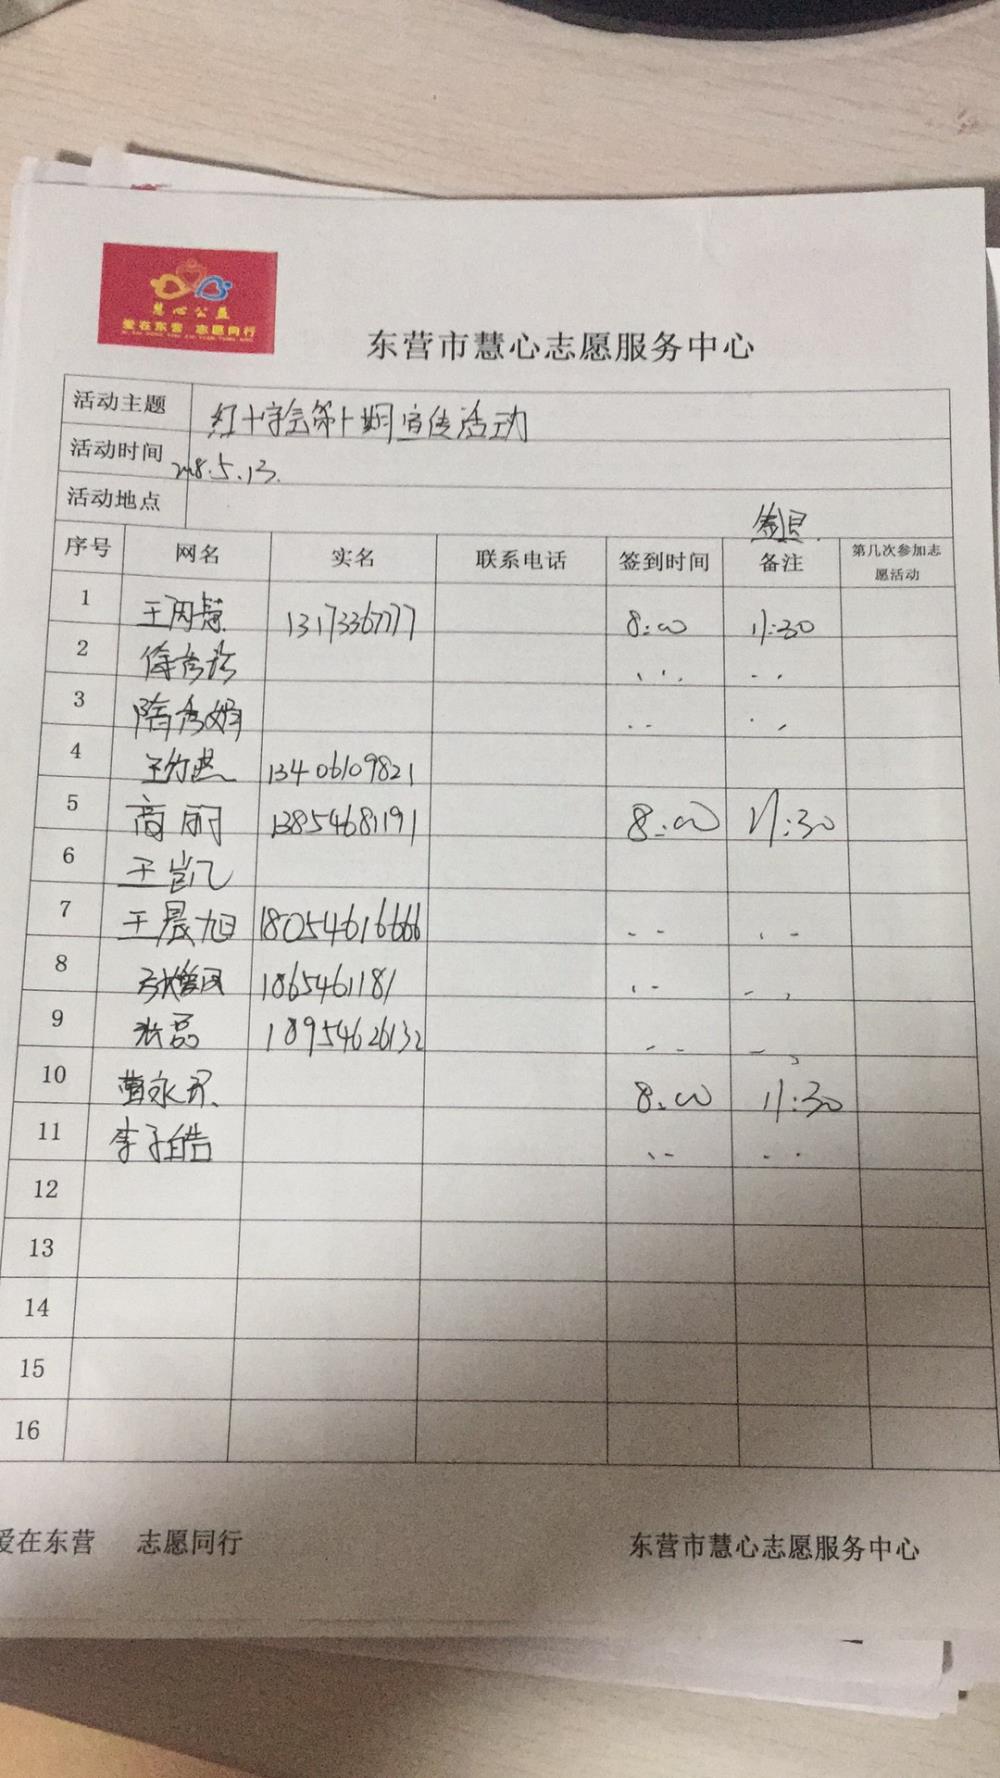 慧心公益
爱在东营 志愿同行
东营市慧心志愿服务中心
活动主题 红十字会第十期宣传活动
活动时间 2018.5.13.
活动地点
签退
序号 网名 实名 联系电话 签到时间 备注 第几次参加志愿活动
1 王丙慧 13173367777 8:00 11:30
2 徐秀珍 〃 〃
3 隋秀娟 〃 〃
4 13406109821
5 商丽 13854681191 8:00 11:30
6 王凯
7 王晨旭 18054616666 〃 〃
8 1865461181 〃 〃
9 张磊 18954626132 〃 〃
10 曹永军 8:00 11:30
11 李子皓 〃 〃
12
13
14
15
16
爱在东营 志愿同行 东营市慧心志愿服务中心